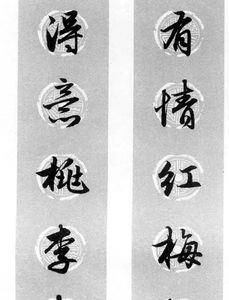 有情红梅
得意桃李